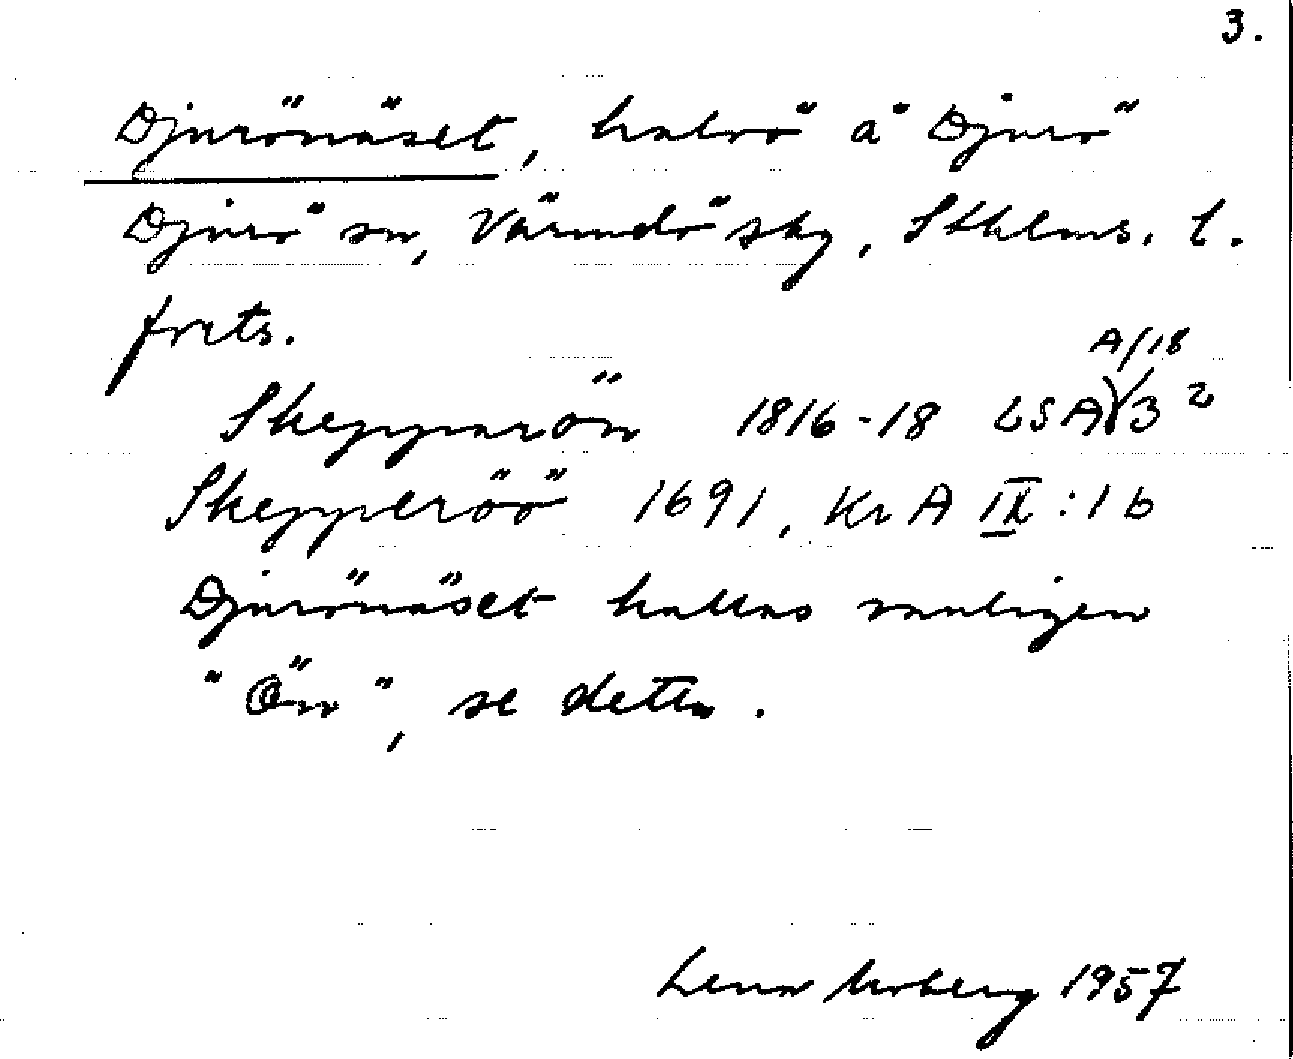 3.
Djurönäset, halvö å Djurö
Djurö sn, Värmdö skg, Sthlms. l.
forts.
A/18
Skepparön 1816-18 LSA 3²
Skepperöö 1691, KrA IX:1b
Djurönäset kallas vanligen
"Ön", se detta.
Lena Moberg 1957